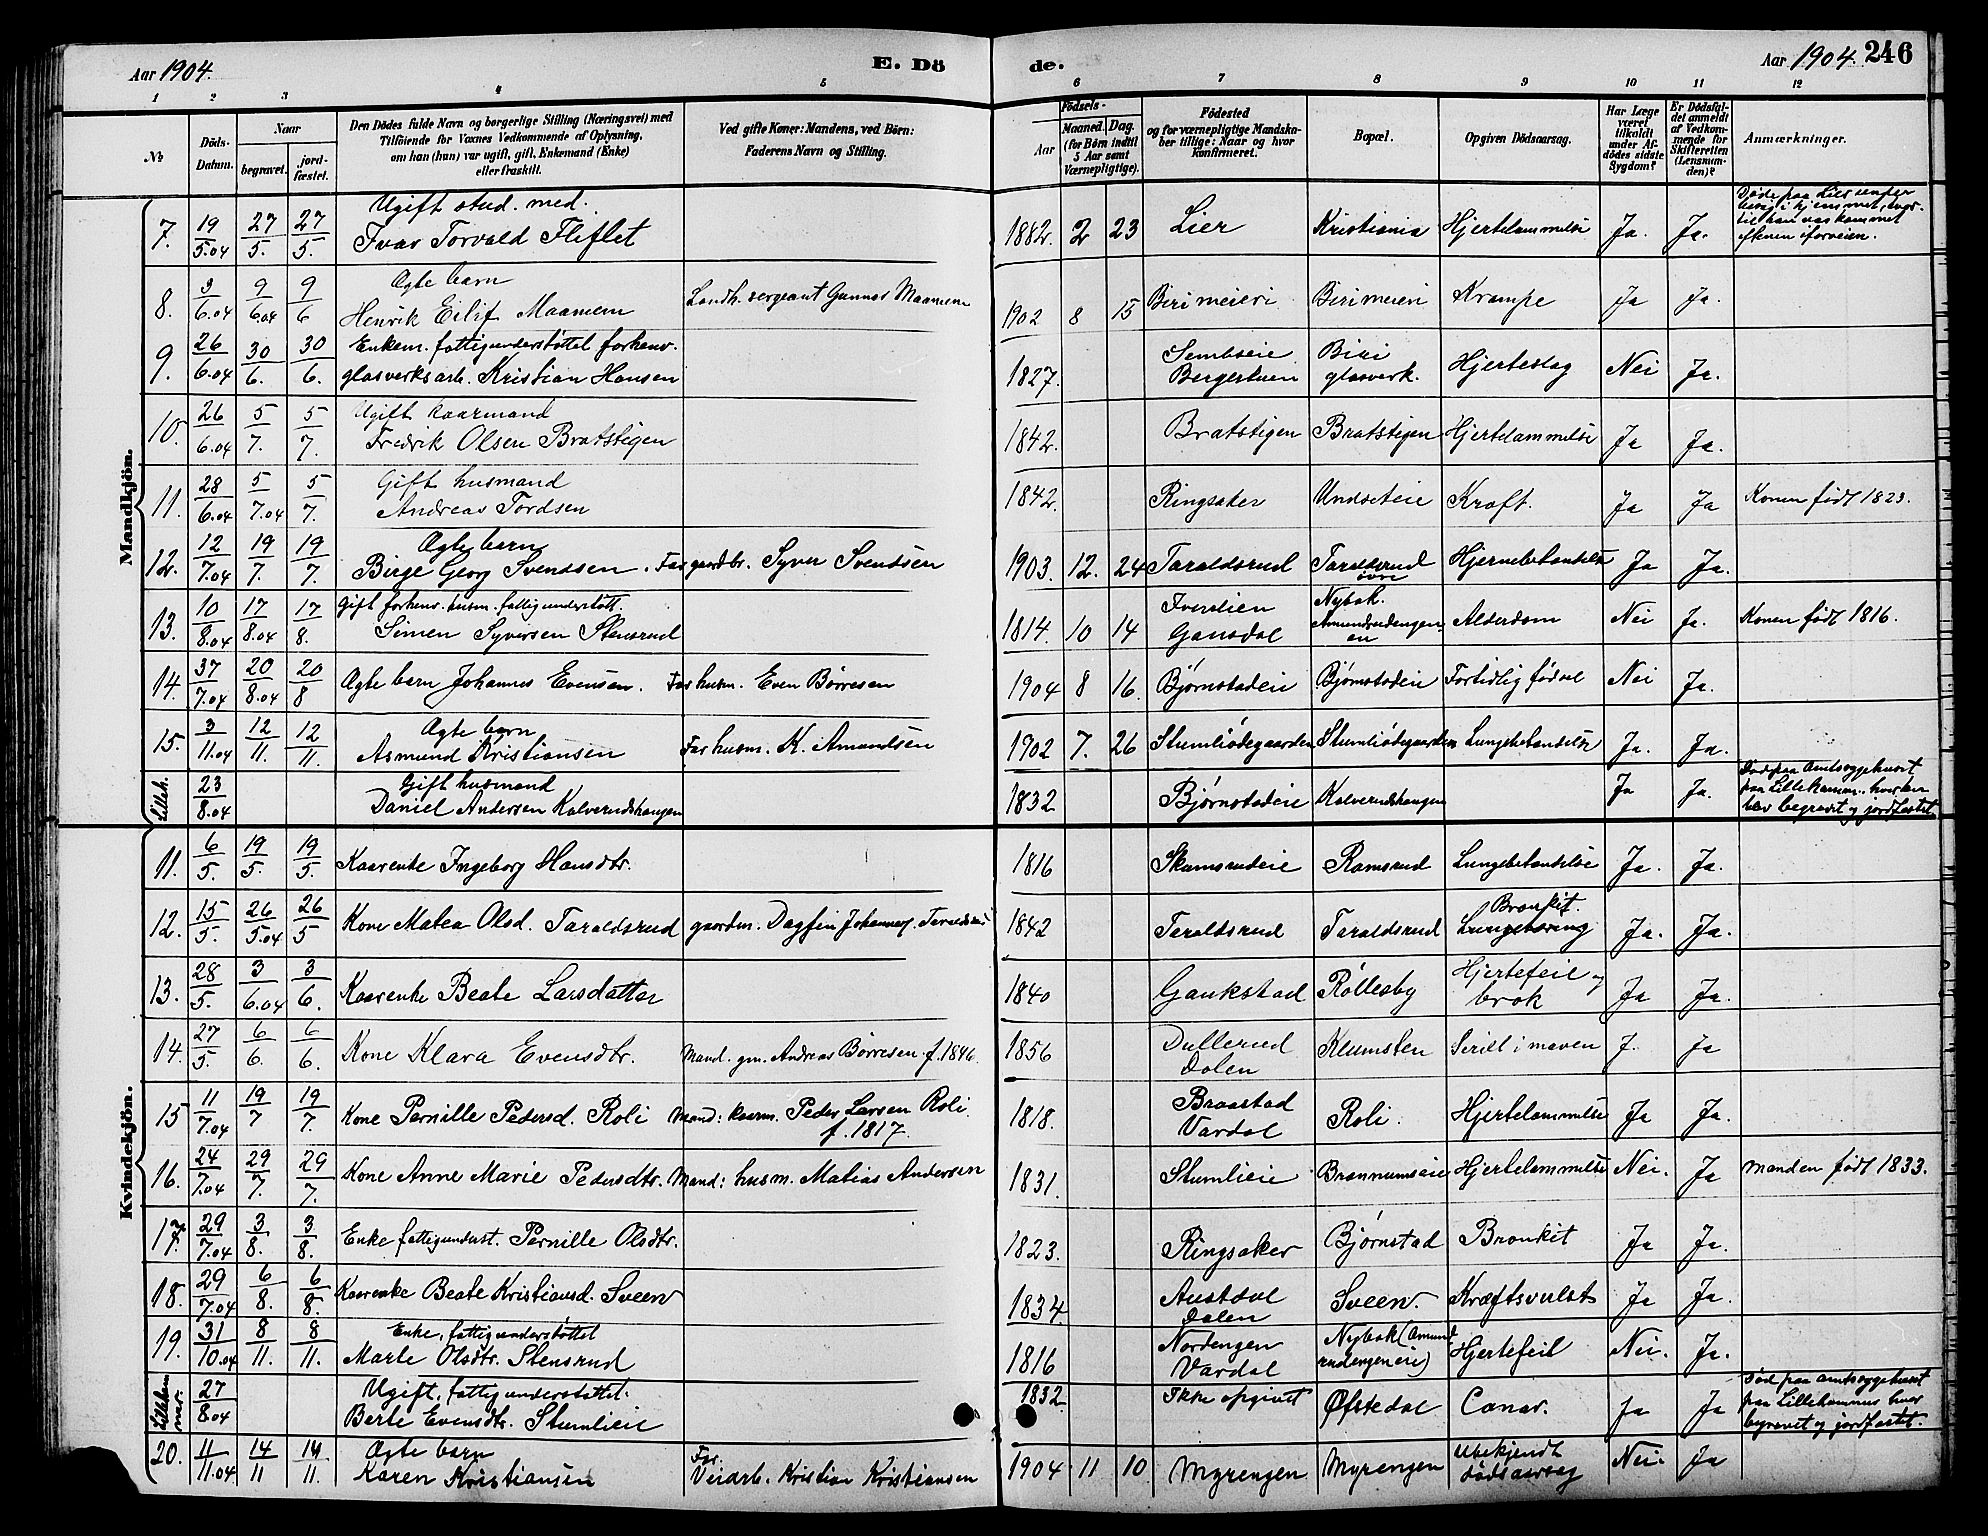 Aar 1904.
E. Dö
de.
Aar 1904. 246
1 2 3 4 5 6 7 8 9 10 11 12
№
Döds-Datum.
Naar
begravet.
jord-fæstet.
Den Dödes fulde Navn og borgerlige Stilling (Næringsvei) med
Tilföiende for Voxnes Vedkommende af Oplysning,
om han (hun) var ugift, gift, Enkemand (Enke)
eller fraskilt.
Ved gifte Koner: Mandens, ved Börn:
Faderens Navn og Stilling.
Födsels-
Aar
Maaned. Dag.
(for Börn indtil
5 Aar samt
Værnepligtige).
Födested
og for værnepligtige Mandska-
ber tillige: Naar og hvor
konfirmeret.
Bopæl.
Opgiven Dödsaarsag.
Har Læge
været
tilkaldt
under Af-
dödes sidste
Sygdom?
Er Dödsfal-
det anmeldt
af Vedkom-
mende for
Skifteretten
(Lensman-
den)?
Anmærkninger.
Mandkjön.
7. 19/5.04 27/5. 27/5. Ugift stud. med.
Ivar Torvald Fliflet 1882. 2 23 Lier Kristiania Hjertelammelse Ja. Ja.
8. 3/6.04 9/6.04 9/6 Ægte barn
Henrik Eilif Maamem Landh. sergeant Gunnar Maamem 1902 8 15 Biri meieri Biri meieri Krampe Ja Ja.
9. 26/6.04 30/6. 30/6. Enkem. fattigunderstøttet forhenv.
glasverksarb. Kristian Hansen 1827. Sembseie
Bergerstuen Biri
glasverk. Hjerteslag Nei Ja.
10. 26/6.04 5/7. 5/7. Ugift kaarmand
Fredrik Olsen Bratstigen 1842. Bratstigen Bratstigen Hjertelammelse Ja Ja.
11. 28/6.04 5/7.04 5/7. Gift husmand
Andreas Tordsen 1842. Ringsaker Undseteie Kræft. Ja Ja Konen født 1823.
12. 12/7.04 19/7. 19/7. Ægte barn
Birge Georg Svendsen. Far gaardbr. Syver Svendsen 1903. 12. 24 Taraldsrud Taraldsrud
øvre Hjernebetændelse Ja Ja.
13. 10/8.04 17/8.04 17/8. Gift forhenv. husm. fattigunderstøtt.
Simen Syversen Stensrud 1814. 10 14 Iverslien
Gausdal Nybak.
Amundrudengen-
en Alderdom Nei Ja. Konen født 1816.
14. 37/7.04 20/8.04 20/8 Ægte barn Johannes Evensen. Far husm. Even Børresen 1904 8 16 Bjørnstadeie Bjørnstadeie Fortidlig fødsel Nei Ja.
15. 3/11.04 12/11. 12/11. Ægte barn
Asmund Kristiansen Far husm. K. Amundsen 1902 7. 26 Stumliødegaarden Stumliødegaarden Lungebetændelse Ja. Ja.
Lilleh. 23/8.04 Gift husmand
Daniel Andersen Kalverudshaugen 1832 Bjørnstadeie Kalverudshaugen Ja Ja. Død paa Amtssygehuset
paa Lillehammer, hvor han
blev begravet og jordfæstet.
Kvindekjön.
11. 6/5. 19/5. 19/5. Kaarenke Ingeborg Hansdtr. 1816 Skumsrudeie Ramsrud Lungebetændelse Ja. Ja.
12. 15/5. 26/5.04 26/5 Kone Matea Olsd. Taraldsrud gaardm. Dagfin Johannes. Taraldsrud 1842 Taraldsrud Taraldsrud Bronkit.
Lungetæring Ja. Ja.
13. 28/5. 3/6.04 3/6. Kaarenke Beate Larsdatter 1840 Gaukstad Røllesby Hjertefeil og
brok Ja Ja.
14. 27/5. 6/6. 6/6. Kone Klara Evensdtr. Mand. gm. Andreas Børresen f. 1846. 1856 Dullerud
Dalen Klumsten Ja
15 11/7.04 19/7 19/7. Kone Pernille Pedersd. Roli Mand: kaarm. Peder Larsen Roli.
f. 1817. 1818. Braastad
Vardal Roli. Hjertelammelse Ja Ja.
16. 24/7.04 29/7. 29/7. Kone Anne Marie Pedersdtr. Mand: husm. Matias Andersen 1831. Stumlieie Brønnumseie Hjertelammelse Nei. Ja Manden født 1833.
17. 29/7.04 3/8. 3/8. Enke fattigunderst. Pernille Olsdtr. 1823. Ringsaker Bjørnstad Bronkit Ja Ja.
18. 29/7.04 6/8. 6/8. Kaarenke Beate Kristiansd. Sveen 1834 Austdal
Dalen Sveen. Kræftsvulst Ja Ja.
19. 31/10.04 8/11. 8/11. Enke, fattigunderstøttet
Marte Olsdtr. Stensrud 1816 Nordengen
Vardal Nybak (Amund
rudengeneie) Hjertefeil Nei. Ja.
Lilleham
mer. 27/8.04 Ugift, fattigunderstøttet.
Berte Evensdtr. Stumlieie 1832 Ikke opgivet Øfstedal Cancer. Ja Ja Død paa Amtssygehuset
paa Lillehammer hvor
begravet og jordfæstet.
20. 11/11.04 14/11 14/11. Ægte barn
Karen Kristiansen Far.
Veiarb. Kristian Kristiansen 1904 11 10 Myrengen Myrengen Ubekjendt
dødsaarsag Nei. Ja